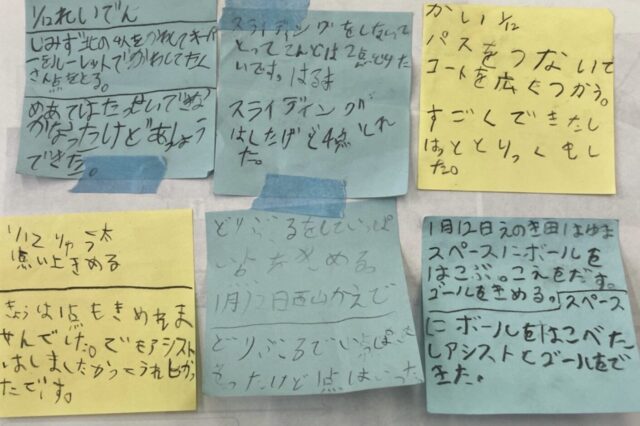 1/12 れいでん
しみず北の4人をつれてキーパ
ーをルーレットでかわしてたく
さん点をとる。
めあてはたっせいできな
かなったけどあっしょう
できた。
スライディングをしないって
とってこんどは2点とりた
いです。はるま
スライディング
はしたけど4点とれ
た。
かい 1/12
パスをつないで
コートを広くつかう。
すごくできたし
はっととりっくもし
た。
1/12 りゅう太
点い上きめる
きょうは1点もきめれま
せんでした。でもアシスト
はしましたかってうれしかっ
たです。
どりぶるをしていっぱ
い点をきめる。
1月12日西山かえで
どりぶるでいっぱい
きったけど1点はいった
1月12日えのき田はゆま
スペースにボールを
はこぶ。こえをだす。
ゴールをきめる。スペース
にボールをはこべた
しアシストとゴールをで
きた。